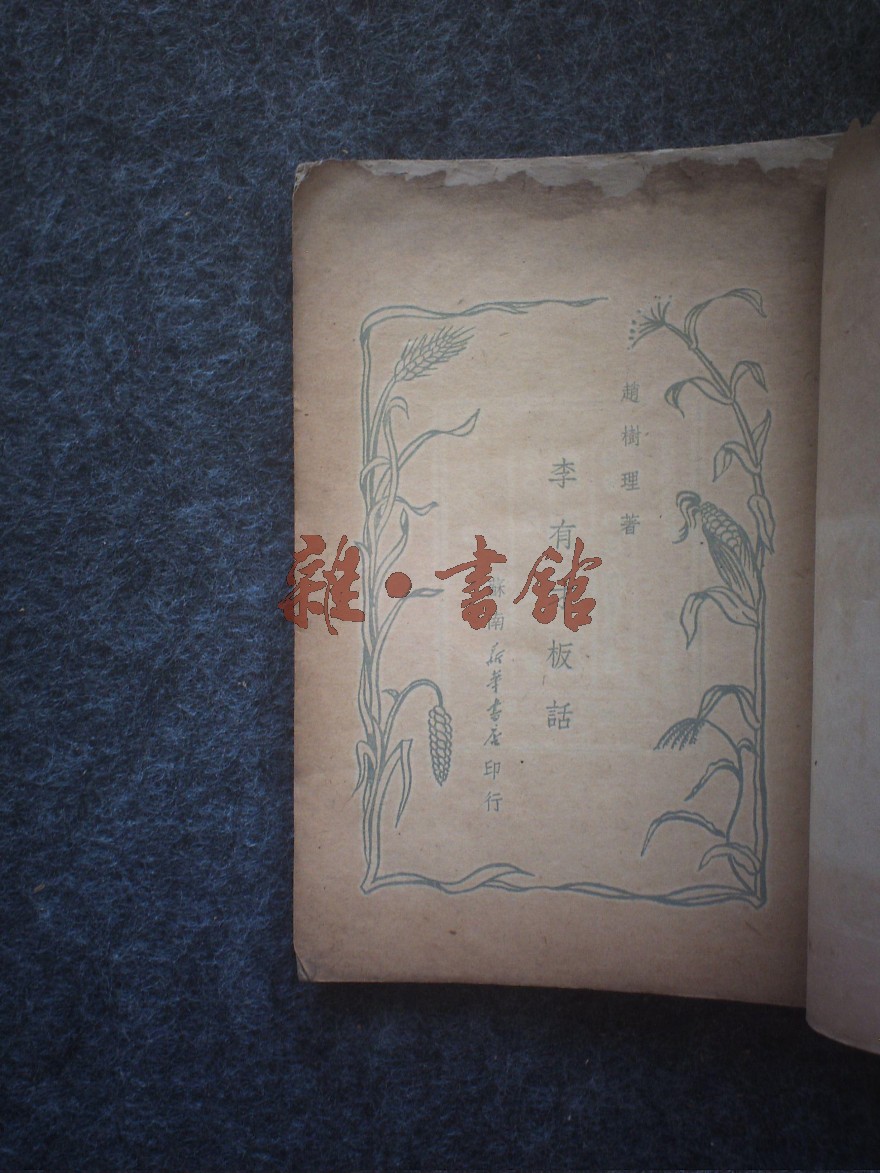 趙樹理著
李有才板話
蘇南新華書店印行
雜·書館